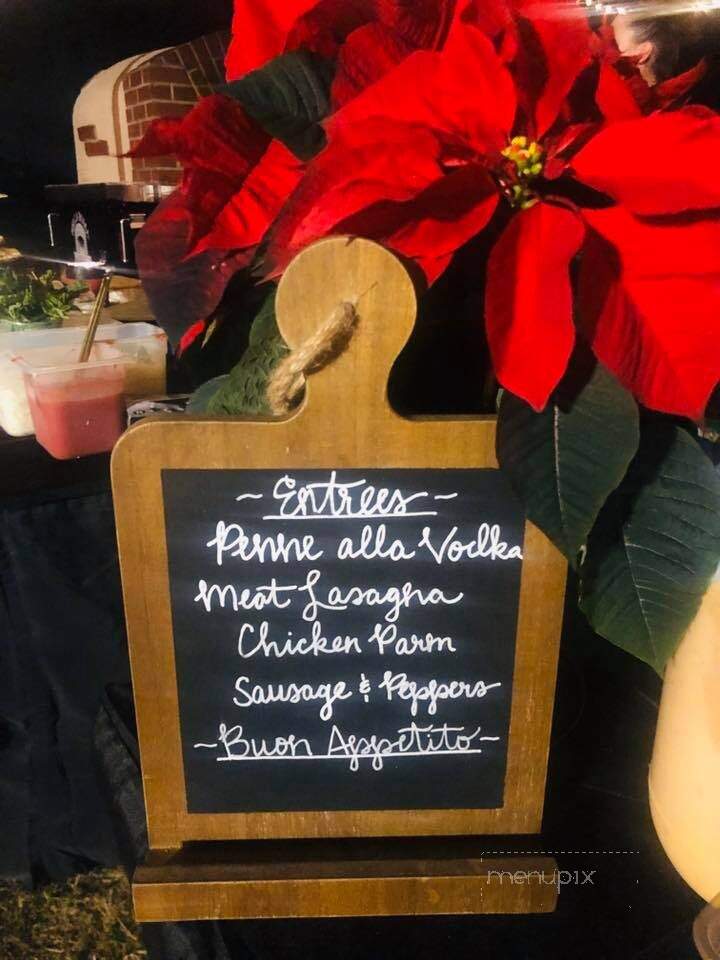 ~ Entrees ~
Penne alla Vodka
Meat Lasagna
Chicken Parm
Sausage & Peppers
~ Buon Appetito ~
menupix